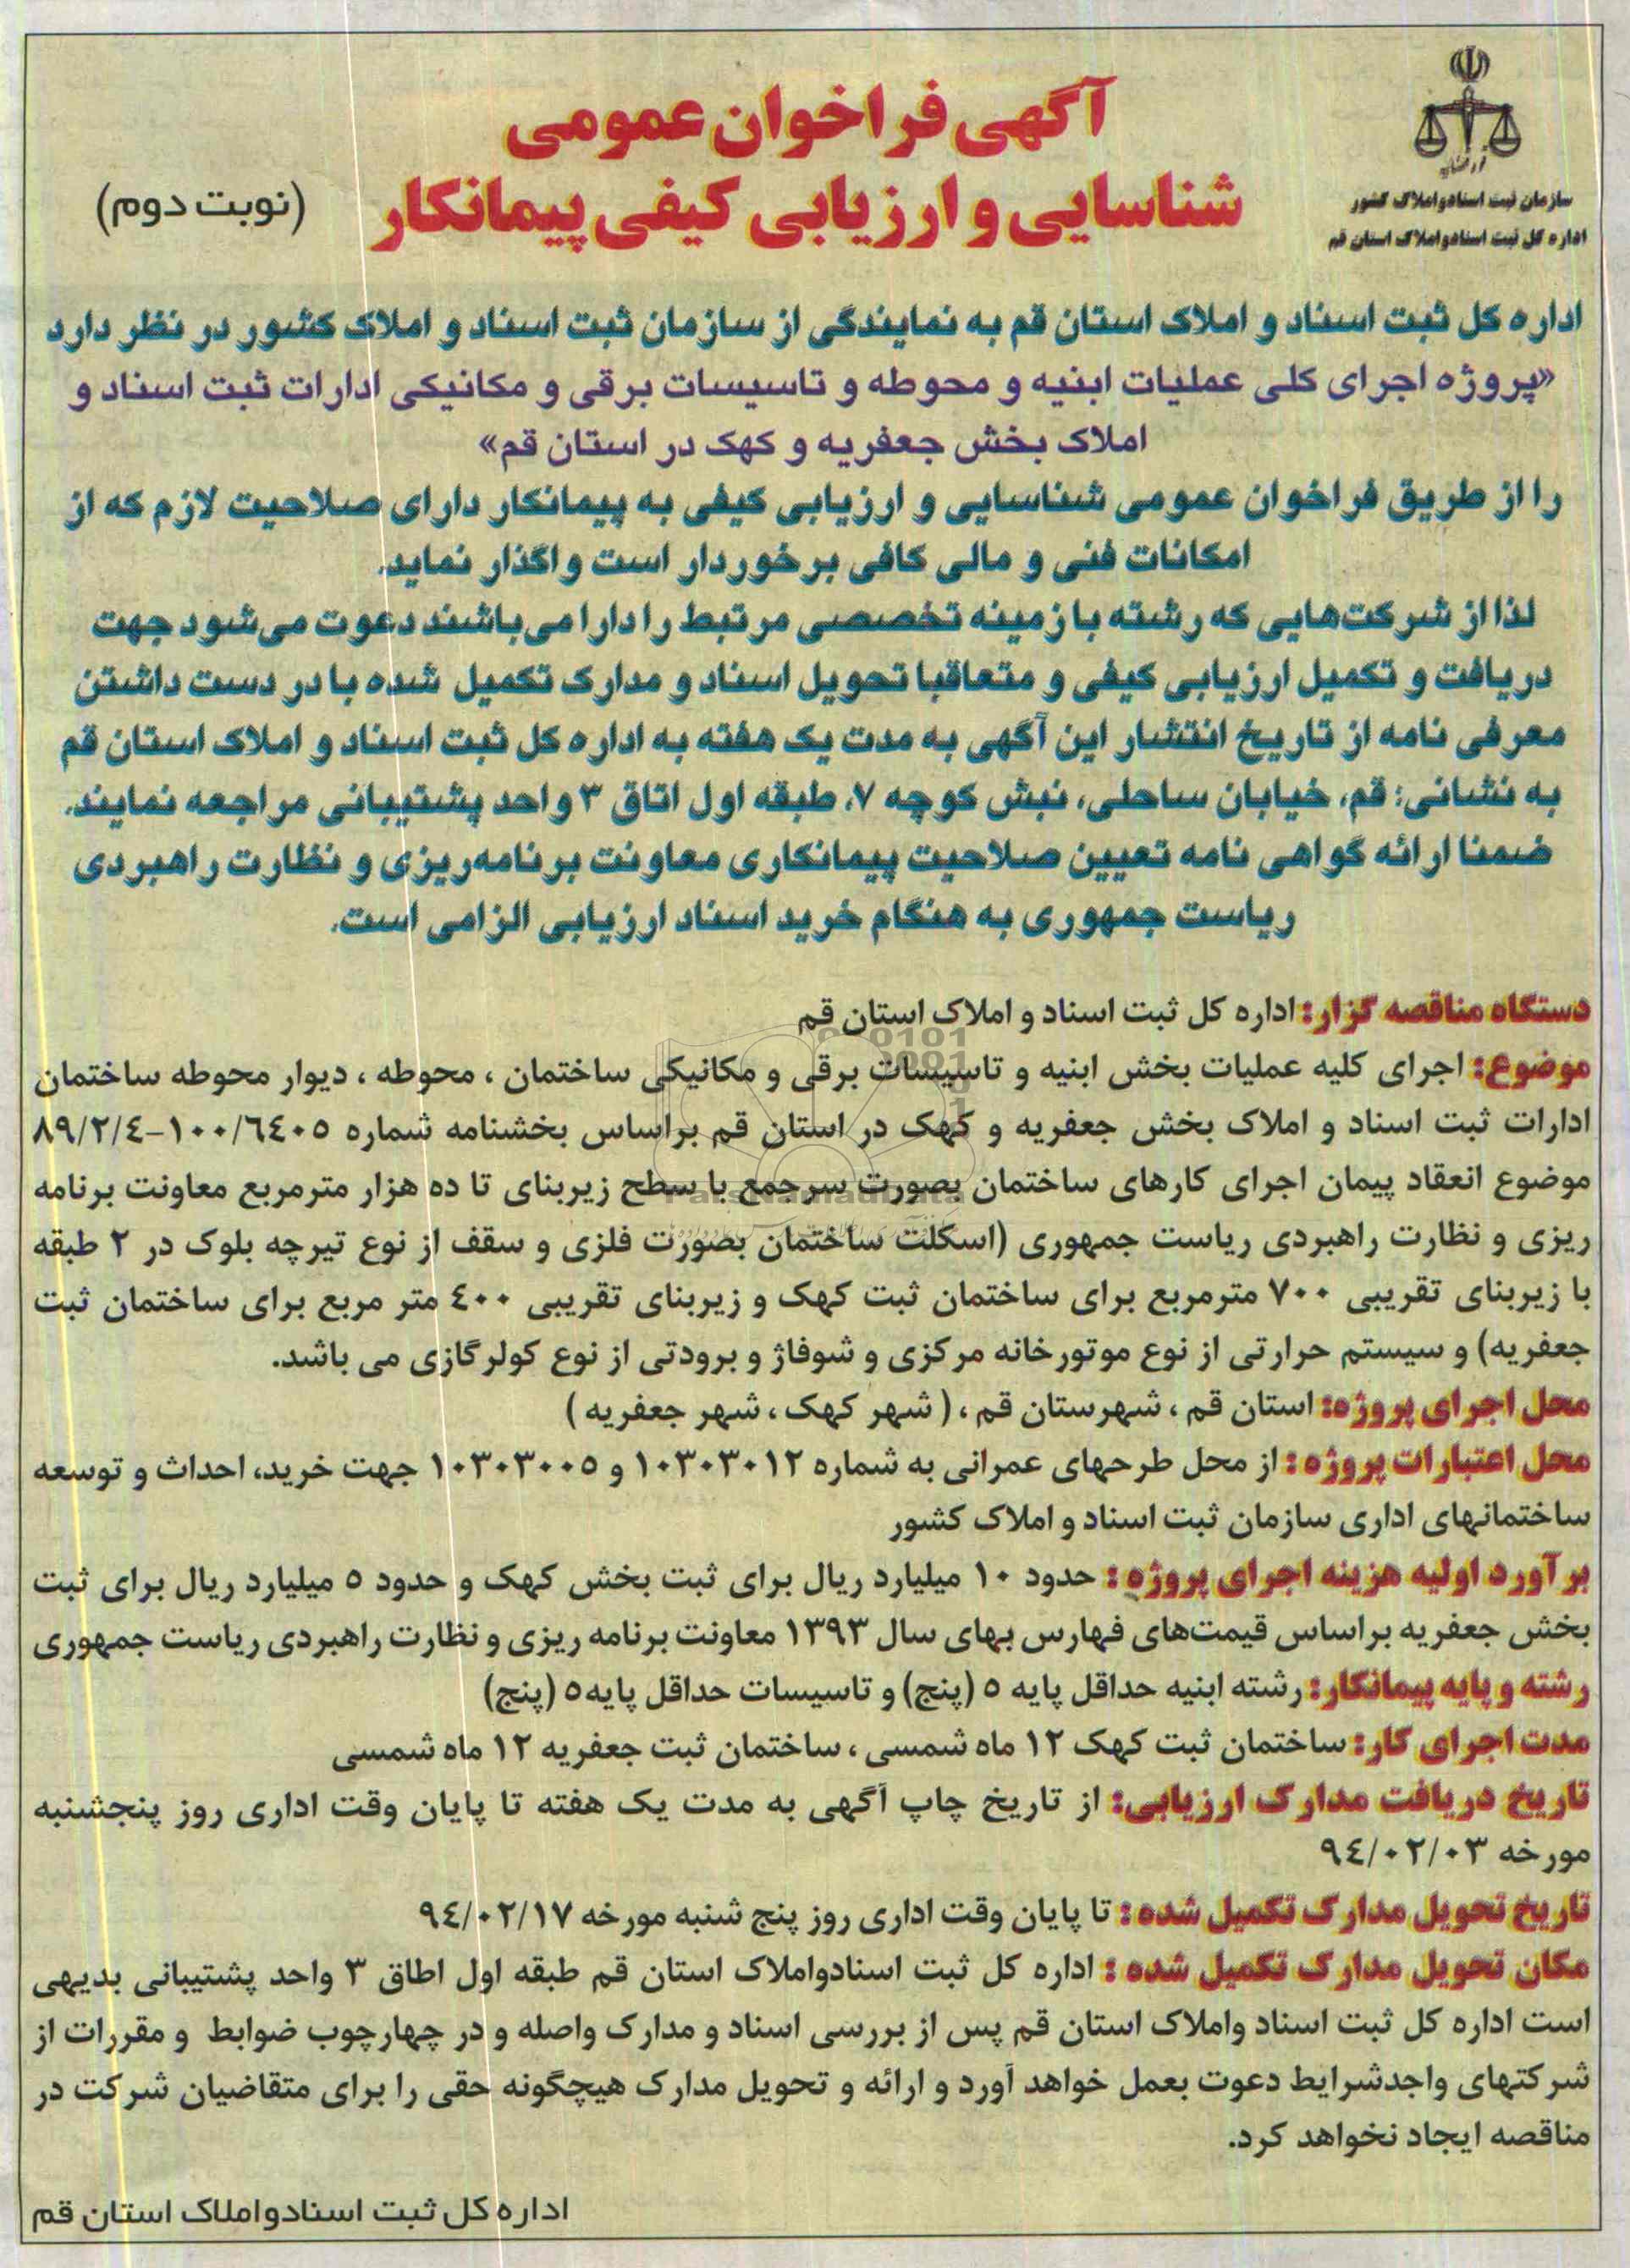 سازمان ثبت اسنادواملاک کشور
اداره کل ثبت اسنادواملاک استان قم
آگهی فراخوان عمومی
شناسایی و ارزیابی کیفی پیمانکار
(نوبت دوم)
اداره کل ثبت اسناد و املاک استان قم به نمایندگی از سازمان ثبت اسناد و املاک کشور در نظر دارد
«پروژه اجرای کلی عملیات ابنیه و محوطه و تاسیسات برقی و مکانیکی ادارات ثبت اسناد و
املاک بخش جعفریه و کهک در استان قم»
را از طریق فراخوان عمومی شناسایی و ارزیابی کیفی به پیمانکار دارای صلاحیت لازم که از
امکانات فنی و مالی کافی برخوردار است واگذار نماید.
لذا از شرکت‌هایی که رشته با زمینه تخصصی مرتبط را دارا می‌باشند دعوت می‌شود جهت
دریافت و تکمیل ارزیابی کیفی و متعاقبا تحویل اسناد و مدارک تکمیل شده با در دست داشتن
معرفی نامه از تاریخ انتشار این آگهی به مدت یک هفته به اداره کل ثبت اسناد و املاک استان قم
به نشانی: قم، خیابان ساحلی، نبش کوچه ۷، طبقه اول اتاق ۳ واحد پشتیبانی مراجعه نمایند.
ضمنا ارائه گواهی نامه تعیین صلاحیت پیمانکاری معاونت برنامه‌ریزی و نظارت راهبردی
ریاست جمهوری به هنگام خرید اسناد ارزیابی الزامی است.
دستگاه مناقصه گزار: اداره کل ثبت اسناد و املاک استان قم
موضوع: اجرای کلیه عملیات بخش ابنیه و تاسیسات برقی و مکانیکی ساختمان ، محوطه ، دیوار محوطه ساختمان
ادارات ثبت اسناد و املاک بخش جعفریه و کهک در استان قم براساس بخشنامه شماره ۱۰۰/۶۴۰۵-۸۹/۲/۴
موضوع انعقاد پیمان اجرای کارهای ساختمان بصورت سرجمع با سطح زیربنای تا ده هزار مترمربع معاونت برنامه
ریزی و نظارت راهبردی ریاست جمهوری (اسکلت ساختمان بصورت فلزی و سقف از نوع تیرچه بلوک در ۲ طبقه
با زیربنای تقریبی ۷۰۰ مترمربع برای ساختمان ثبت کهک و زیربنای تقریبی ۴۰۰ متر مربع برای ساختمان ثبت
جعفریه) و سیستم حرارتی از نوع موتورخانه مرکزی و شوفاژ و برودتی از نوع کولرگازی می باشد.
محل اجرای پروژه: استان قم ، شهرستان قم ، ( شهر کهک ، شهر جعفریه )
محل اعتبارات پروژه : از محل طرحهای عمرانی به شماره ۱۰۳۰۳۰۱۲ و ۱۰۳۰۳۰۰۵ جهت خرید، احداث و توسعه
ساختمانهای اداری سازمان ثبت اسناد و املاک کشور
برآورد اولیه هزینه اجرای پروژه : حدود ۱۰ میلیارد ریال برای ثبت بخش کهک و حدود ۵ میلیارد ریال برای ثبت
بخش جعفریه براساس قیمت‌های فهارس بهای سال ۱۳۹۳ معاونت برنامه ریزی و نظارت راهبردی ریاست جمهوری
رشته و پایه پیمانکار: رشته ابنیه حداقل پایه ۵ (پنج) و تاسیسات حداقل پایه۵ (پنج)
مدت اجرای کار: ساختمان ثبت کهک ۱۲ ماه شمسی ، ساختمان ثبت جعفریه ۱۲ ماه شمسی
تاریخ دریافت مدارک ارزیابی: از تاریخ چاپ آگهی به مدت یک هفته تا پایان وقت اداری روز پنجشنبه
مورخه ۹۴/۰۲/۰۳
تاریخ تحویل مدارک تکمیل شده : تا پایان وقت اداری روز پنج شنبه مورخه ۹۴/۰۲/۱۷
مکان تحویل مدارک تکمیل شده : اداره کل ثبت اسنادواملاک استان قم طبقه اول اطاق ۳ واحد پشتیبانی بدیهی
است اداره کل ثبت اسناد واملاک استان قم پس از بررسی اسناد و مدارک واصله و در چهارچوب ضوابط و مقررات از
شرکتهای واجدشرایط دعوت بعمل خواهد آورد و ارائه و تحویل مدارک هیچگونه حقی را برای متقاضیان شرکت در
مناقصه ایجاد نخواهد کرد.
اداره کل ثبت اسنادواملاک استان قم